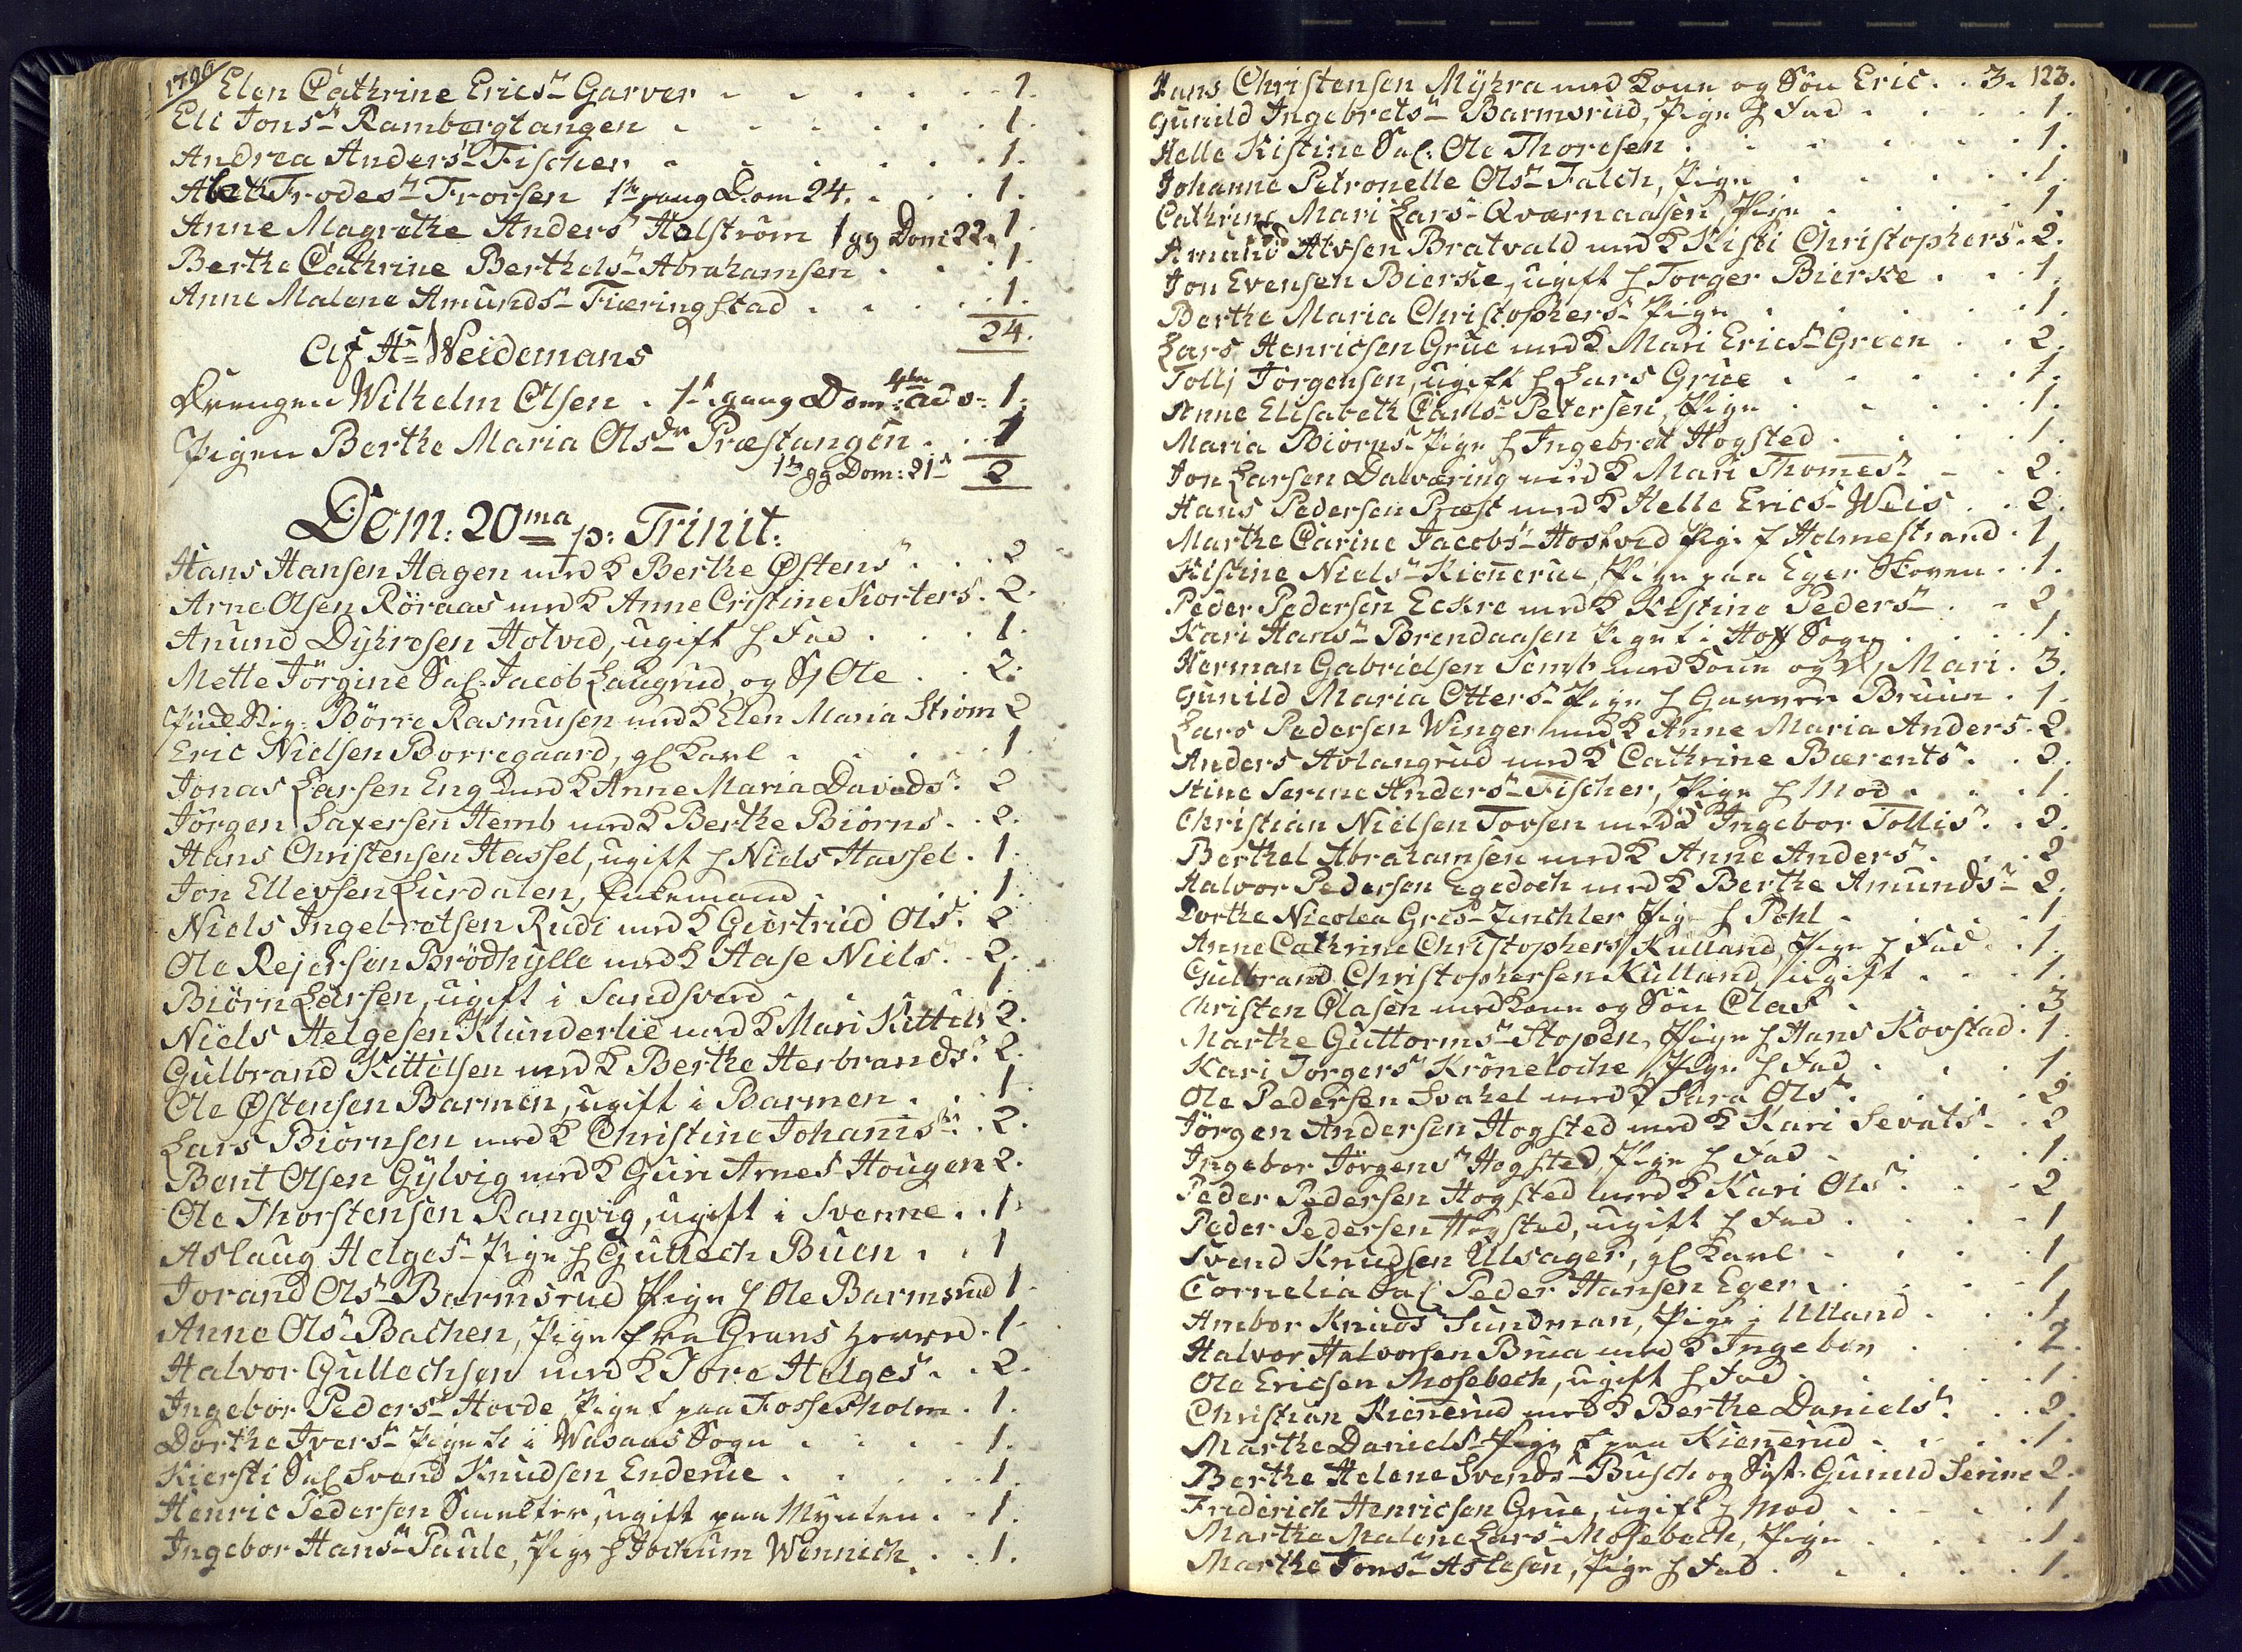 1790
Elen Cathrine Erics: Garver 1.
Eli Jons: Rambergtangen 1.
Andrea Anders: Fischer 1.
Frodes: Frorsen 1te gang Dom 24. 1.
Anne Magrethe Anders: Holström 1 gg Dom: 22. 1.
Berthe Cathrine Berthels: Abrahamsen 1.
Anne Malene Amunds: Fiæringstad 1.
24.
Af Hr Weidemans
Drengen Wilhelm Olsen. 1te gang Dom: 4de adv: 1.
Pigen Berthe Maria Olsdr Præstangen 1
1te gg Dom: 21de 2
Dom: 20ma p: Trinit:
Hans Hansen Hagen med K Berthe Østens: 2
Arne Olsen Röraas med K Anne Cristine Korters. 2.
Anund Dyhresen Holved, ugift h Fad 1.
Mette Jörgine Sal. Jacob Laugrud, og Ole 2.
Börre Rasmusen med K Elen Maria Ström 2
Eric Nielsen Borregaard, gl Karl 1
Jonas Larsen Eng med K Anne Maria Davids: 2
Jörgen Saxersen Hemb med K Berthe Biörns. 2.
Hans Christensen Hassel, ugift h Niels Hassel. 1.
Jon Ellevsen Lurdalen, Enkemand 1.
Niels Ingebretsen Rudi med K Giertrud Ols: 2
Ole Rejersen Brödhylle med K Aase Niels: 2.
Biörn Larsen, ugift i Sandsverd 1
Niels Helgesen Klunderlie med K Mari Kittils 2.
Gulbrand Kittilsen med K Berthe Herbrands: 2.
Ole Østensen Barmen, ugift i Barmen. 1.
Lars Biörnsen med K Christine Johanis: 2.
Bent Olsen Gylvig med K Guri Arnes Hougen 2.
Ole Thorstensen Rangvig, ugift i Svenne. 1.
Aslaug Helges: Pige h Gullech Buen 1
Jorand Ols: Barmsrud Pige h Ole Barmsrud 1.
Anne Ols: Bachen, Pige fra Grans Herred. 1
Halvor Gullechsen med K Tore Helges: 2.
Ingebor Peders: Hovde, Pige f paa Fossesholm. 1.
Dorthe Ivers: Pige i Wasaas Sogn 1.
Kiersti Sal Svend Knudsen Enderue 1.
Henric Pedersen Smelter, ugift paa Mynten. 1.
Ingebor Hans: Paule, Pige h Jochum Wennich 1.
Hans Christensen Myhra med Kone og Sön Eric. 3. 123.
Gunild Ingebrets: Barmsrud, Pige h Fad 1.
Helle Kistine Sal: Ole Thoresen 1.
Johanne Petronelle Ols: Falch, Pige 1.
Cathrine Mari Lars: Qværnaasen, Pige 1.
Amund Atvsen Bratvald med K Kisti Christophers. 2.
Jon Evensen Bierke, ugift h Torger Bierke 1.
Berthe Maria Christophers: Pige 1.
Lars Henricsen Grue med K Mari Erics: Green 2.
Tolli Jörgensen, ugift h Lars Grue 1.
Anne Elisabeth Carls: Petersen, Pige 1.
Maria Biörns: Pige h Ingebret Hogsted 1.
Jon Larsen Dalværing med K Mari Thomes: 2.
Hans Pedersen Præst med K Helle Erics: Weis 2.
Marthe Carine Jacobs: Hostved Pige f Holmestrand. 1
Kistine Niels: Kiennerue, Pige paa Eger Skoven 1.
Peder Pedersen Eckre med K Kistine Peders: 2.
Kari Hans: Brendaasen Pige f i Hoff Sogn 1.
Herman Gabrielsen Semb med Kone og Mari. 3.
Gunild Maria Otters: Pige h Garver Bruun 1.
Lars Pedersen Winger med K Anne Maria Anders. 2.
Anders Avlangrud med K Cathrine Bærents: 2.
Stine Serine Anders: Fischer, Pige h Mod 1.
Christian Nielsen Torsen med K Ingebor Tollis: 2.
Berthel Abrahamsen med K Anne Anders: 2
Halvor Pedersen Egedoch med K Berthe Amunds: 2.
Dorthe Nicolea Gres: Zenchler Pige h Pohl 1
Anne Cathrine Christophers: Kulland, Pige h Fad 1.
Gulbrand Christophersen Kulland, ugift 1.
Christen Clasen med Kone og Sön Clas 3
Marthe Guttorms: Stopen, Pige h Hans Kovstad. 1
Kari Torgers: Kröneloche, Pige h Fad 1.
Ole Pedersen Svahel med K Sara Ols: 2
Jörgen Andersen Hogsted med K Kari Sevats. 2
Ingebor Jörgens: Hogsted, Pige h Fad 1.
Peder Pedersen Hogsted med K Kari Ols: 2
Peder Pedersen Hogsted, ugift h Fad 1
Svend Knudsen Ulsager, gl Karl 1
Cornelia Sal Peder Hansen Eger 1
Ambor Knuds: Sundman, Pige i Ulland 1.
Halvor Halvorsen Brua med K Ingebor 2.
Ole Ericsen Mosebech, ugift h Fad 1.
Christian Kiennerud med K Berthe Daniels: 2.
Marthe Daniels: Pige f paa Kiennerud 1.
Berthe Helene Svends: Busch og Syst: Gunild Serine 2.
Friderich Henricsen Grue, ugift h Mod 1
Marthe Malene Lars: Mosebech, Pige 1.
Marthe Jons: Aslesen, Pige h Fad 1.